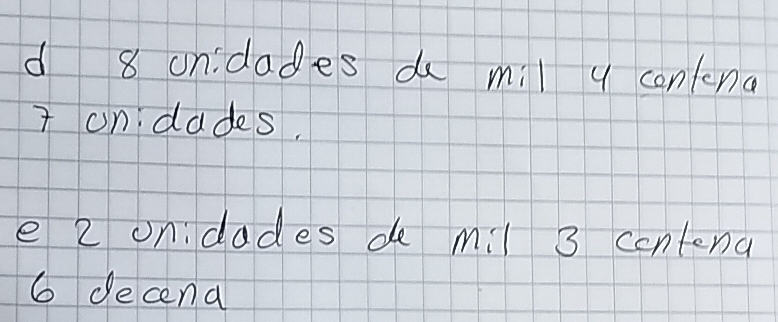 d 8 unidades de mil 4 centena
7 unidades.
e 2 unidades de mil 3 centena
6 decena